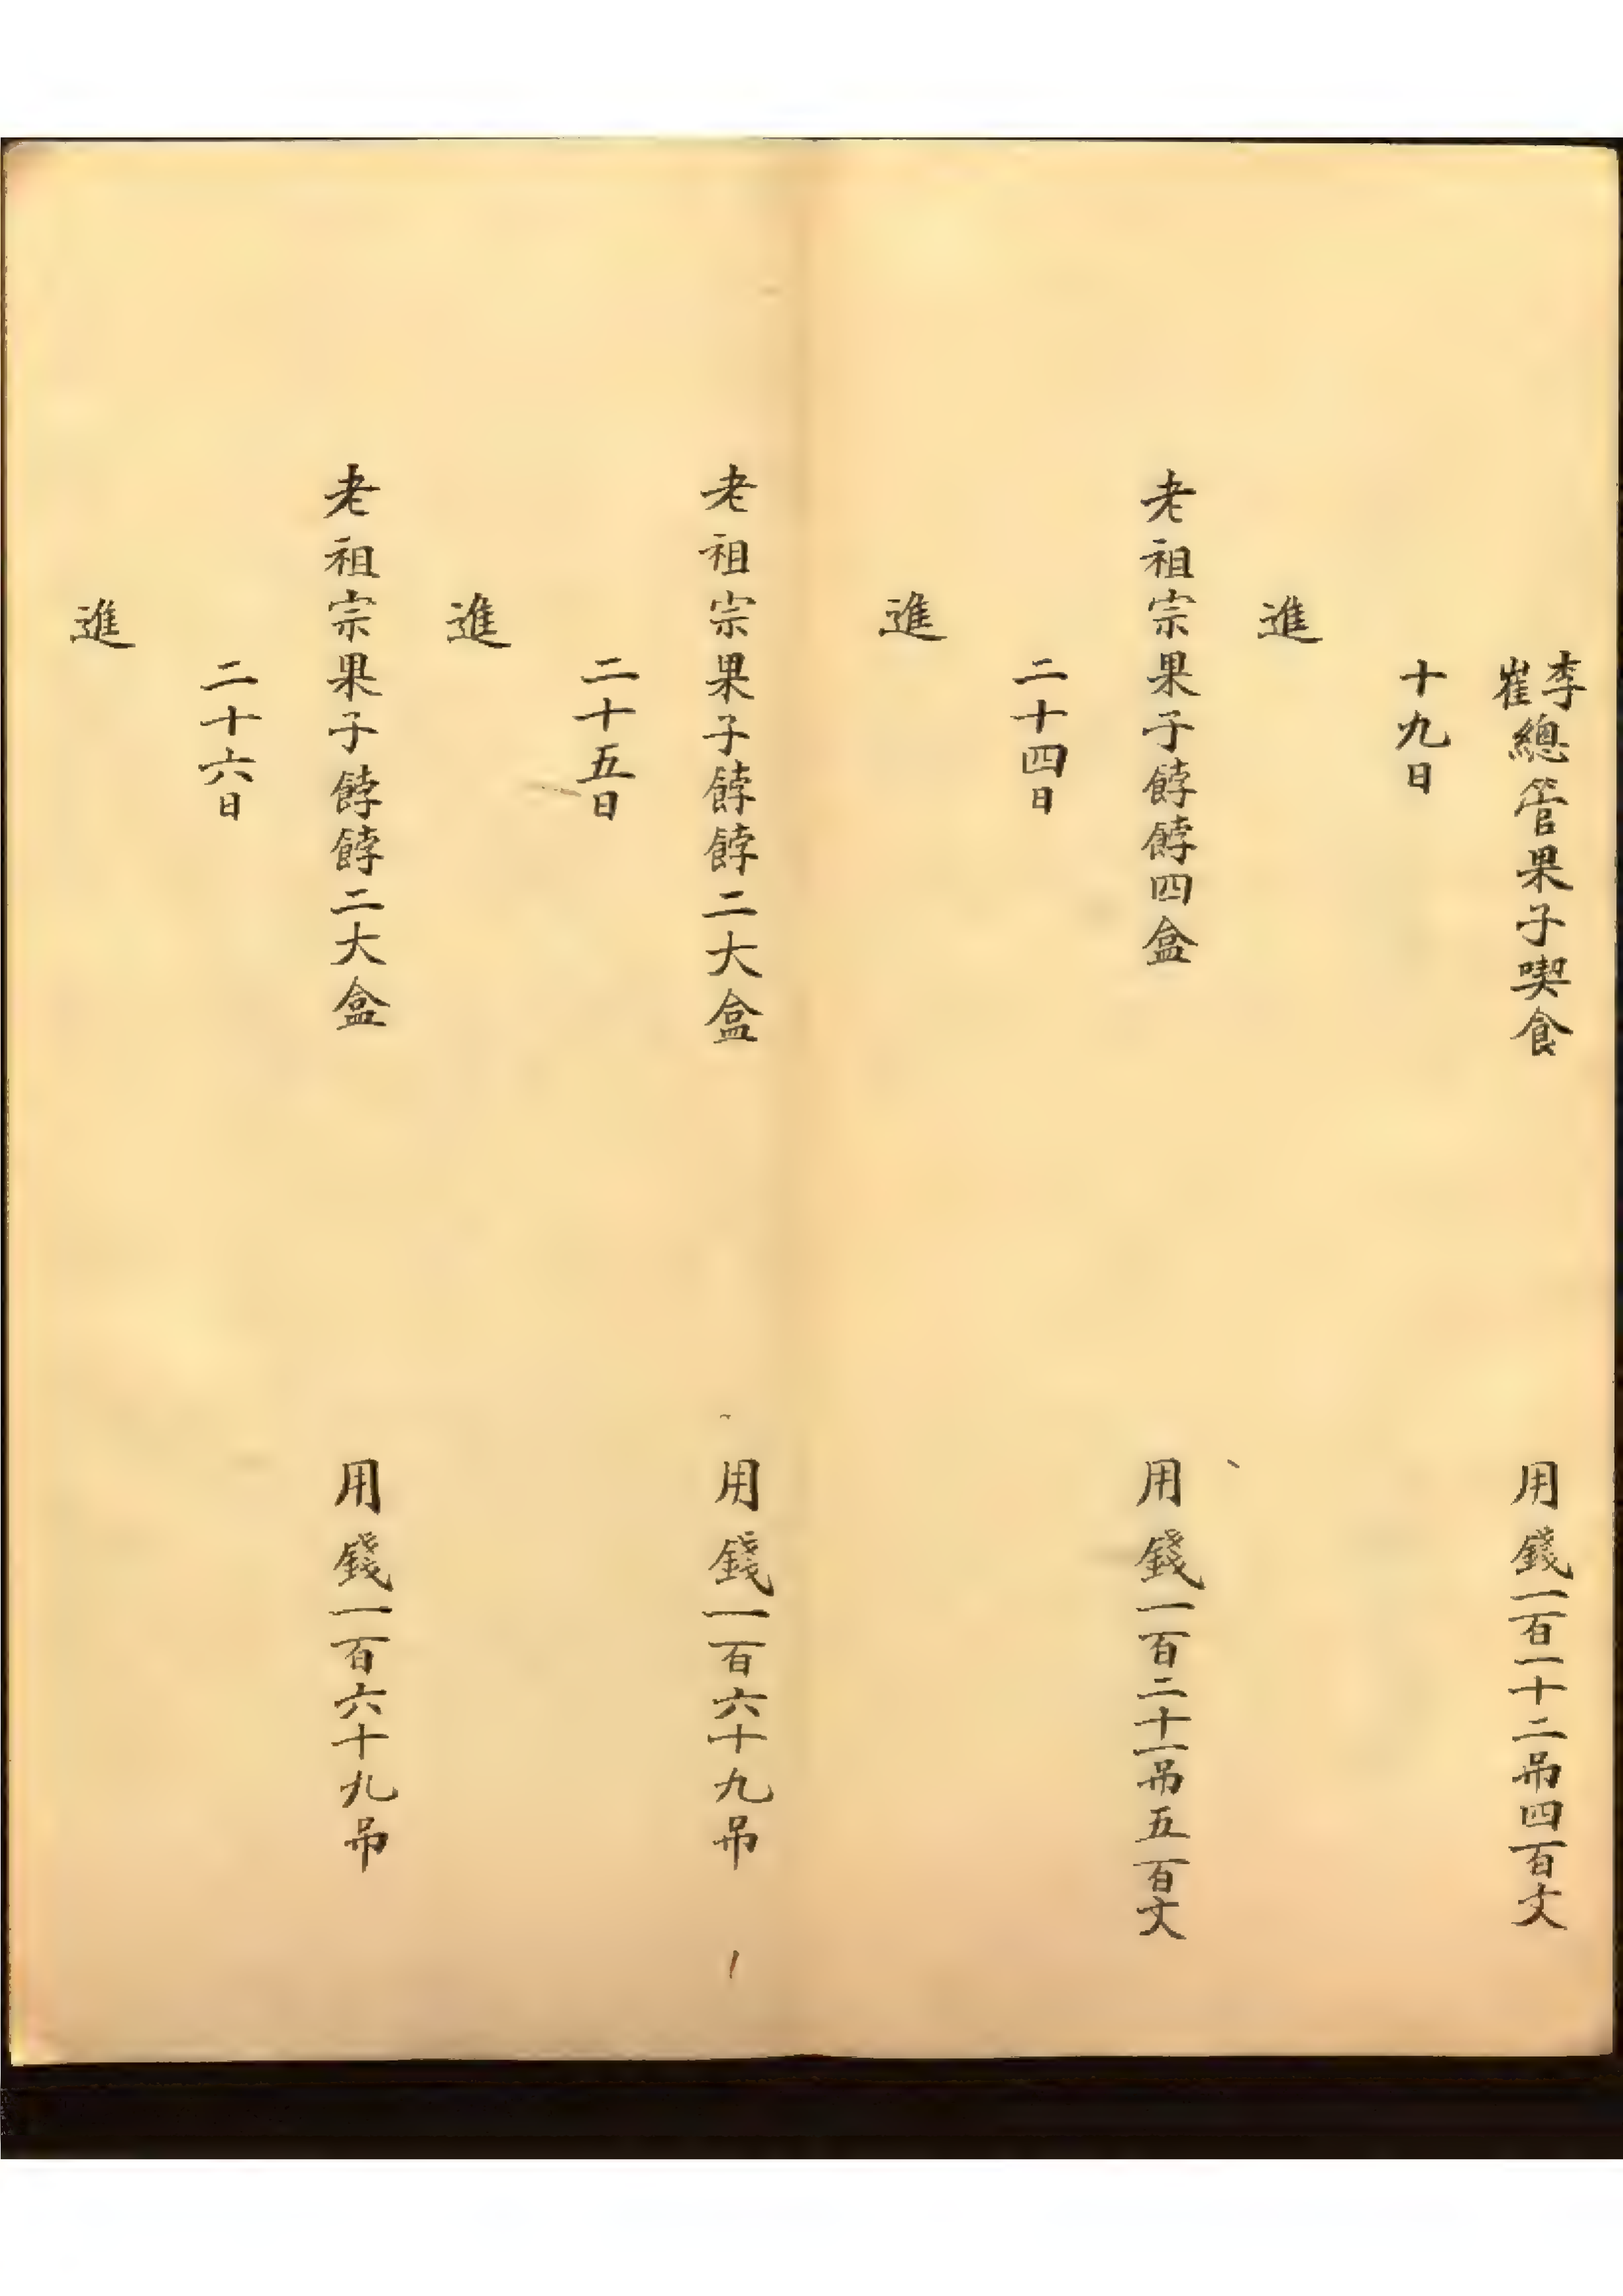 李崔總管果子喫食 用錢一百一十二吊四百文
十九日
進
老祖宗果子餑餑四盒 用錢一百二十一吊五百文
二十四日
進
老祖宗果子餑餑二大盒 用錢一百六十九吊
二十五日
進
老祖宗果子餑餑二大盒 用錢一百六十九吊
二十六日
進